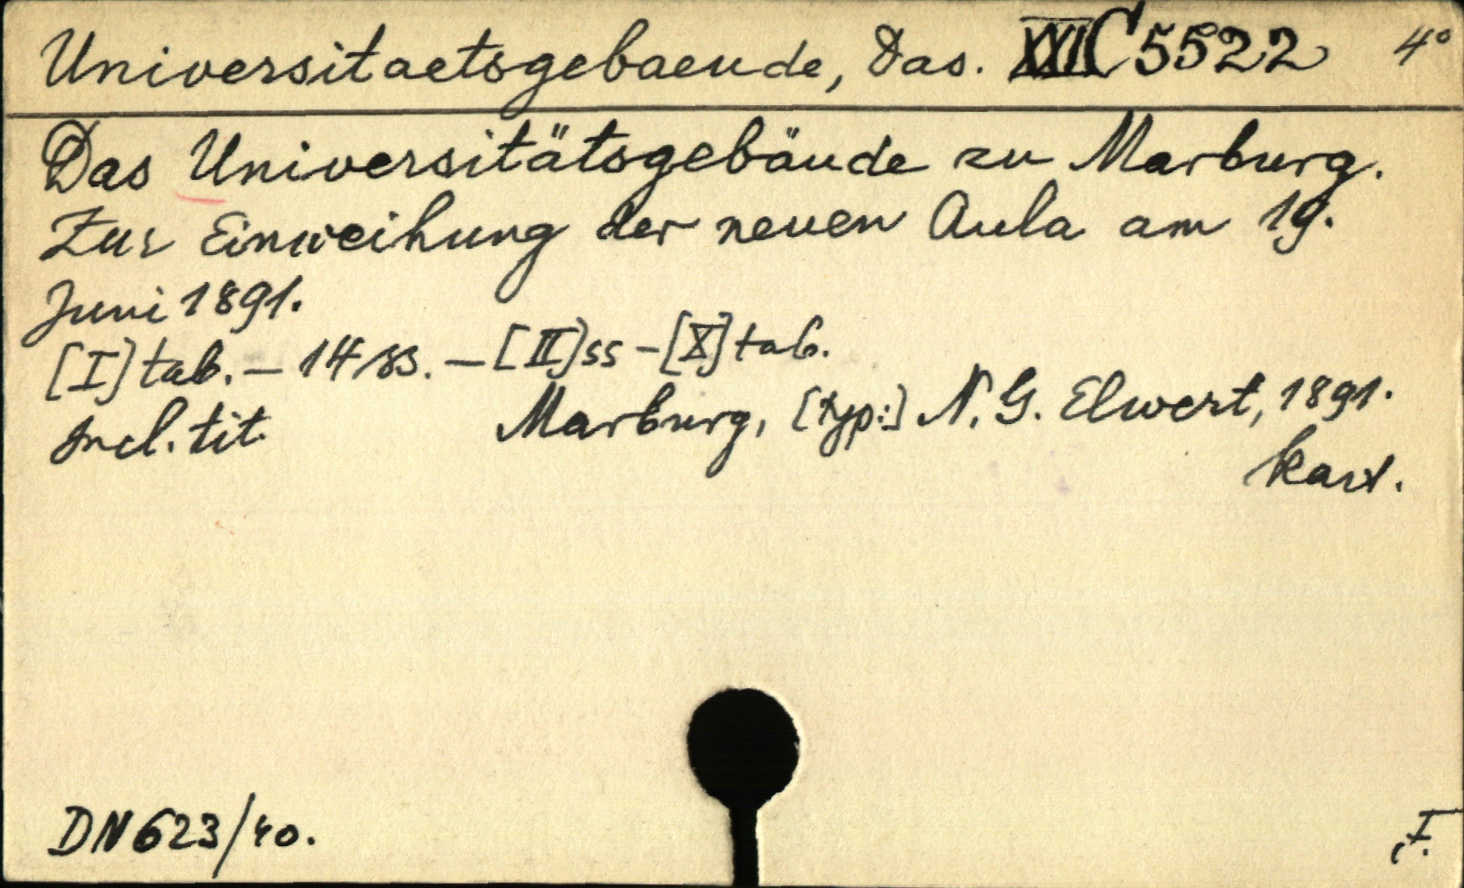 Universitaetsgebaeude, Das. XXIC5522 4°
Das Universitätsgebäude zu Marburg.
Zur Einweihung der neuen Aula am 19.
Juni 1891.
[I] tab. – 14 ss. – [II] ss – [X] tab.
Incl. tit.
Marburg, [typ:] N. G. Elwert, 1891.
kart.
DN623/40.
F.